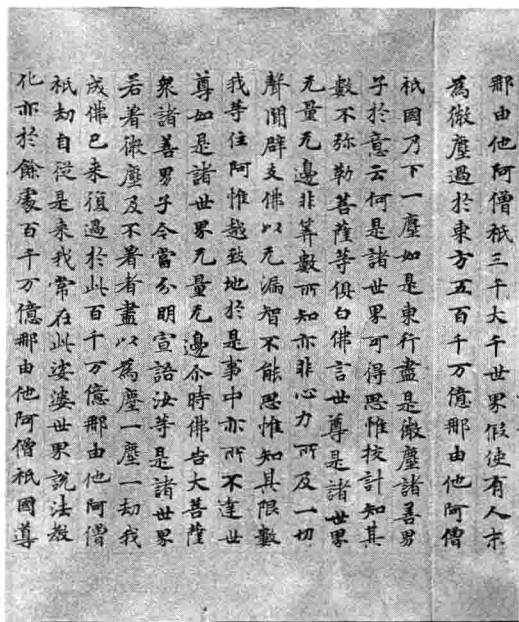 那由他阿僧祇三千大千世界假使有人末
為微塵過於東方五百千万億那由他阿僧
祇國乃下一塵如是東行盡是微塵諸善男
子於意云何是諸世界可得思惟挍計知其
數不弥勒菩薩等俱白佛言世尊是諸世界
无量无邊非筭數所知亦非心力所及一切
聲聞辟支佛以无漏智不能思惟知其限數
我等住阿惟越致地於是事中亦所不達世
尊如是諸世界无量无邊尒時佛告大菩薩
衆諸善男子今當分明宣語汝等是諸世界
若著微塵及不著者盡以為塵一塵一劫我
成佛已来復過於此百千万億那由他阿僧
祇劫自從是来我常在此娑婆世界說法教
化亦於餘處百千万億那由他阿僧祇國導